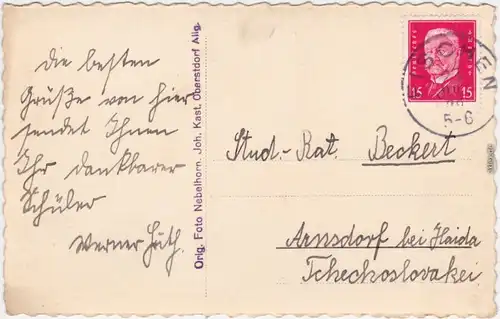 Die besten
Grüße von hier
sendet Ihnen
Ihr dankbarer
Schüler
Werner
Orig. Foto Nebelhorn. Joh. Kast, Oberstdorf Allg.
15 15
5-6
Stud.-Rat. Beckert
Arnsdorf bei Haida
Tchechoslovakei